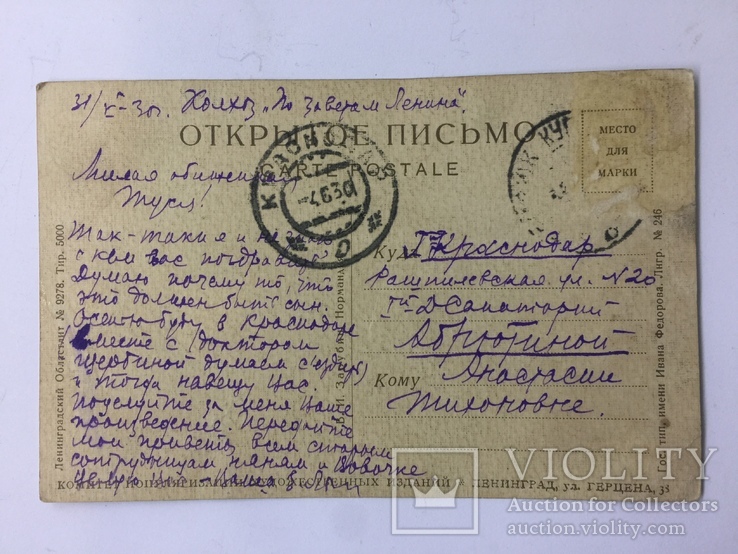 31/V-30г. Колхоз „По заветам Ленина“.
ОТКРЫТОЕ ПИСЬМО
CARTE POSTALE
МЕСТО
ДЛЯ
МАРКИ
Милая
Туся!
Так-таки я и не знаю
с кем вас поздравить?
Думаю почему то, что
это должен быть сын.
Осенью буду в Краснодаре
вместе с доктором
Щербиной думаем
и тогда навещу Вас.
Поцелуйте за меня Ваше
произведение. Передайте
мои приветы всем старым
сотрудницам няням и Вовочке
Куда
г. Краснодар
Рашпилевская ул. №20
Iй Д. Санаторий
Абрютиной
Кому
Анастасии
Тихоновне.
Ленинградский Областлит № 9278. Тир. 5000
Гос. тип. имени Ивана Федорова. Лигр. № 246
КОМИТЕТ ПОПУЛЯРИЗАЦИИ ХУДОЖЕСТВЕННЫХ ИЗДАНИЙ ЛЕНИНГРАД, УЛ. ГЕРЦЕНА, 38
VIOLITY
Auction for Collectors
auction.violity.com